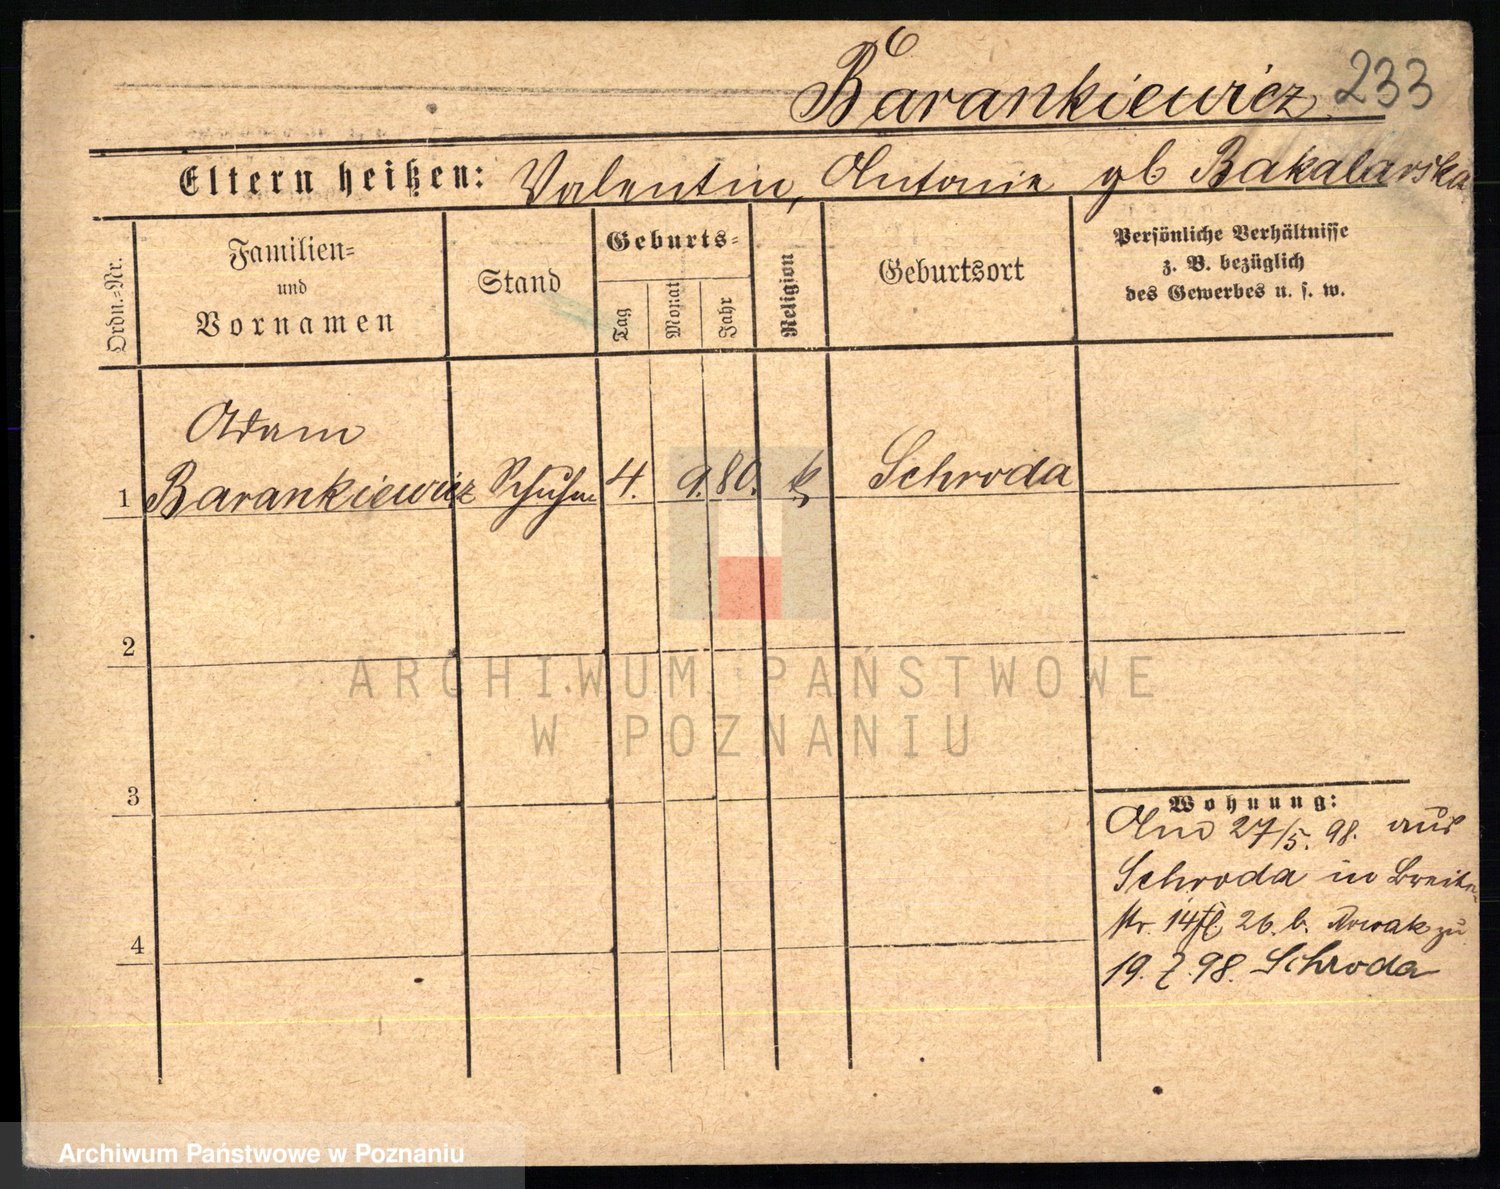 Barankiewicz 233
Eltern heißen: Valentin, Antonie gb Bakalarska
Ordn.=Nr.
Familien=
und
Vornamen
Stand
Geburts=
Tag
Monat
Jahr
Religion
Geburtsort
Persönliche Verhältnisse
z. B. bezüglich
des Gewerbes u. s. w.
Adam
1 Barankiewicz Schuhm 4. 9. 80. k Schroda
2
3
4
Wohnung:
Am 27/5. 98. aus
Schroda in Breite
Str. 14 26. b. Nowak zu
19. 7. 98. Schroda
ARCHIWUM PAŃSTWOWE
W POZNANIU
Archiwum Państwowe w Poznaniu